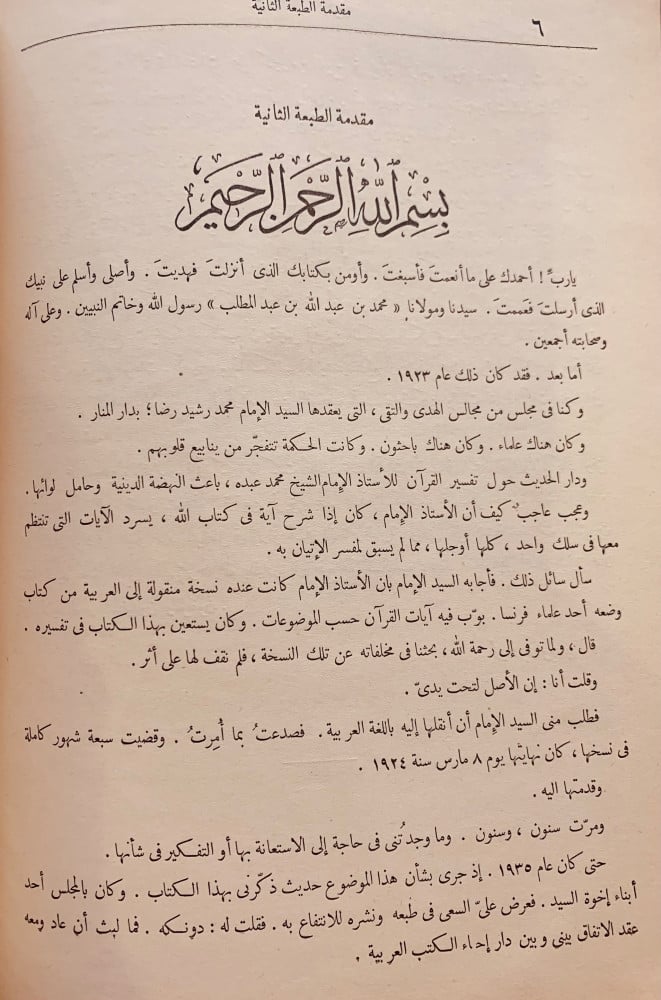 مقدمة الطبعة الثانية
٦
مقدمة الطبعة الثانية
بسم الله الرحمن الرحيم
ياربِّ ! أحمدك على ما أنعمتَ فأسبغتَ . وأومن بكتابك الذى أنزلتَ فهديتَ . وأصلى وأسلم على نبيك
الذى أرسلتَ فعممتَ . سيدنا ومولانا « محمد بن عبد الله بن عبد المطلب » رسول الله وخاتم النبيين . وعلى آله
وصحابته أجمعين .
أما بعد . فقد كان ذلك عام ١٩٢٣ .
وكنا فى مجلس من مجالس الهدى والتقى ، التى يعقدها السيد الإمام محمد رشيد رضا ؛ بدار المنار .
وكان هناك علماء . وكان هناك باحثون . وكانت الحكمة تتفجّر من ينابيع قلوبهم .
ودار الحديث حول تفسير القرآن للأستاذ الإمام الشيخ محمد عبده ، باعث النهضة الدينية وحامل لوائها .
وعجب عاجب كيف أن الأستاذ الإمام ، كان إذا شرح آية فى كتاب الله ، يسرد الآيات التى تنتظم
معها فى سلك واحد ، كلها أوجلها ، مما لم يسبق لمفسر الإتيان به .
سأل سائل ذلك . فأجابه السيد الإمام بان الأستاذ الإمام كانت عنده نسخة منقولة إلى العربية من كتاب
وضعه أحد علماء فرنسا . بوّب فيه آيات القرآن حسب الموضوعات . وكان يستعين بهذا الكتاب فى تفسيره .
قال ، ولما توفى إلى رحمة الله ، بحثنا فى مخلفاته عن تلك النسخة ، فلم نقف لها على أثر .
وقلت أنا : إن الأصل لتحت يدىّ .
فطلب منى السيد الإمام أن أنقلها إليه باللغة العربية . فصدعتُ بما أُمِرتُ . وقضيت سبعة شهور كاملة
فى نسخها ، كان نهايتها يوم ٨ مارس سنة ١٩٢٤ .
وقدمتها اليه .
ومرّت سنون ، وسنون . وما وجدتُنى فى حاجة إلى الاستعانة بها أو التفكير فى شأنها .
حتى كان عام ١٩٣٥ . إذ جرى بشأن هذا الموضوع حديث ذكرنى بهذا الكتاب . وكان بالمجلس أحد
أبناء إخوة السيد . فعرض علىّ السعى فى طبعه ونشره للانتفاع به . فقلت له : دونكه . فما لبث أن عاد ومعه
عقد الاتفاق بينى وبين دار إحياء الكتب العربية .